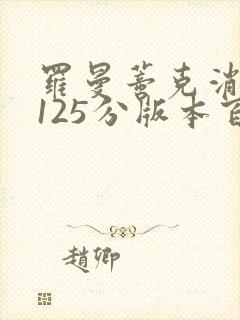 羅曼蒂克消
125分版本百
趙卿